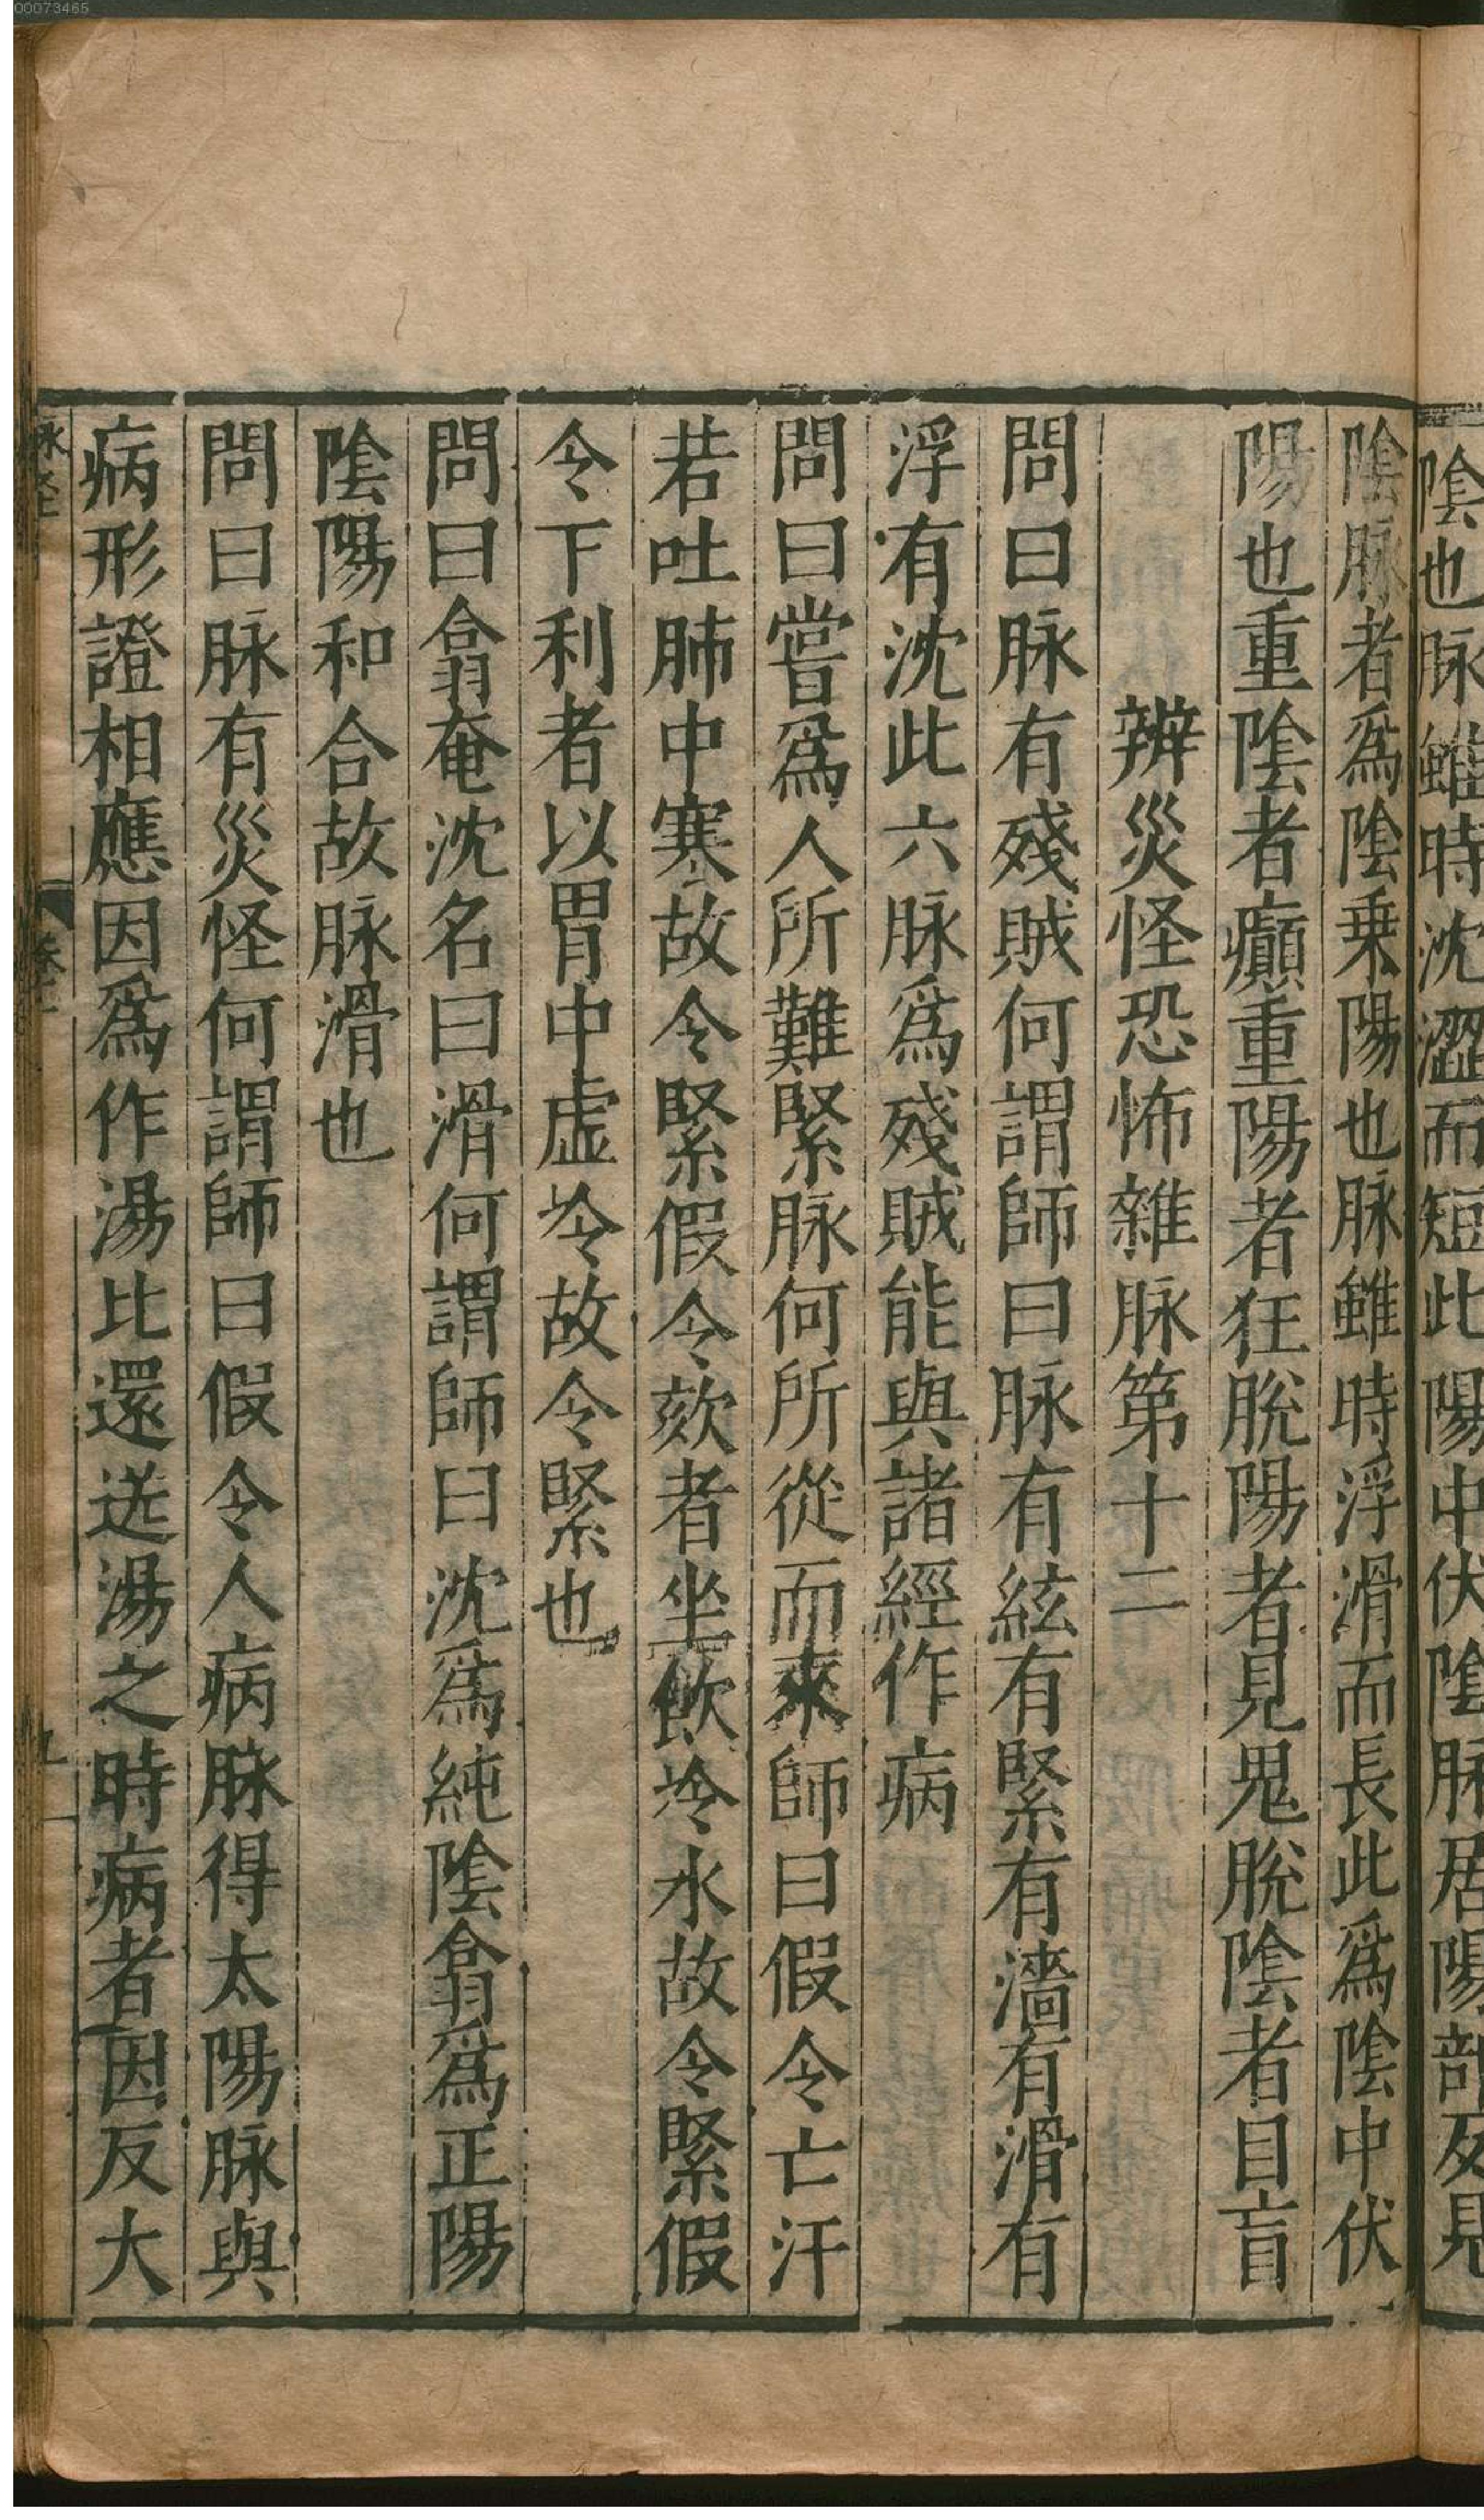 00073465
陰也脉雖時沈澀而短此陽中伏陰脉居陽部反見
陰脉者爲陰乗陽也脉雖時浮滑而長此爲陰中伏
陽也重陰者癲重陽者狂脫陽者見鬼脫陰者目盲
辨災怪恐怖雜脉第十二
問曰脉有殘賊何謂師曰脉有絃有緊有濇有滑有
浮有沈此六脉爲殘賊能與諸經作病
問曰嘗爲人所難緊脉何所從而來師曰假令亡汗
若吐肺中寒故令緊假令欬者坐飲冷水故令緊假
令下利者以胃中虛冷故令緊也
問曰翕奄沈名曰滑何謂師曰沈爲純陰翕爲正陽
陰陽和合故脉滑也
問曰脉有災怪何謂師曰假令人病脉得太陽脉與
病形證相應因爲作湯比還送湯之時病者因反大
脉經
卷一
九